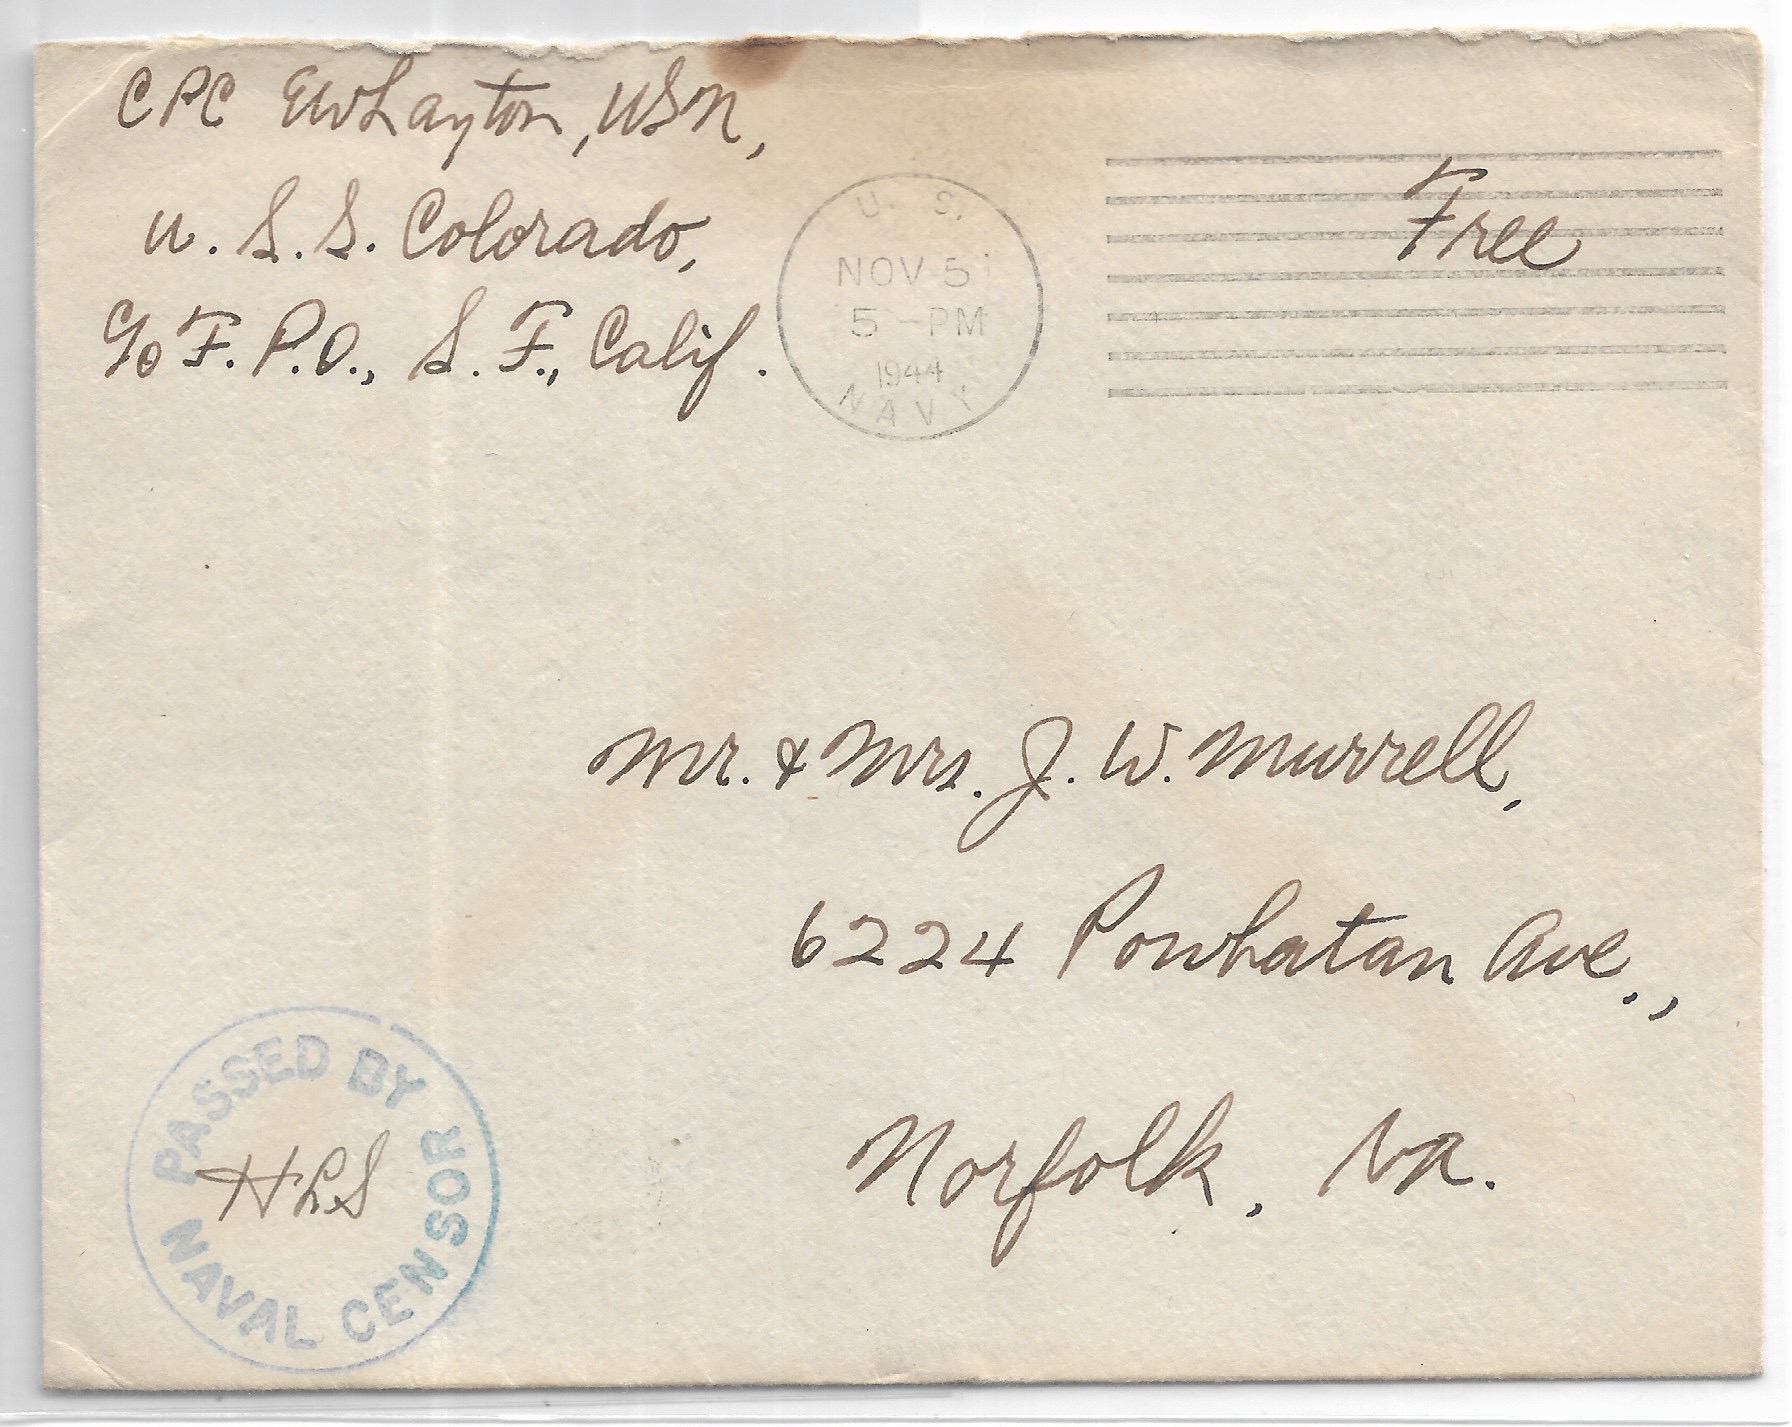 CPC EW Layton, USN,
U. S. S. Colorado,
c/o F. P. O., S. F., Calif.
U. S.
NOV 5
5 - PM
1944
NAVY
Free
Mr. & Mrs. J. W. Murrell,
6224 Powhatan Ave.,
Norfolk, Va.
PASSED BY
NAVAL CENSOR
HLS